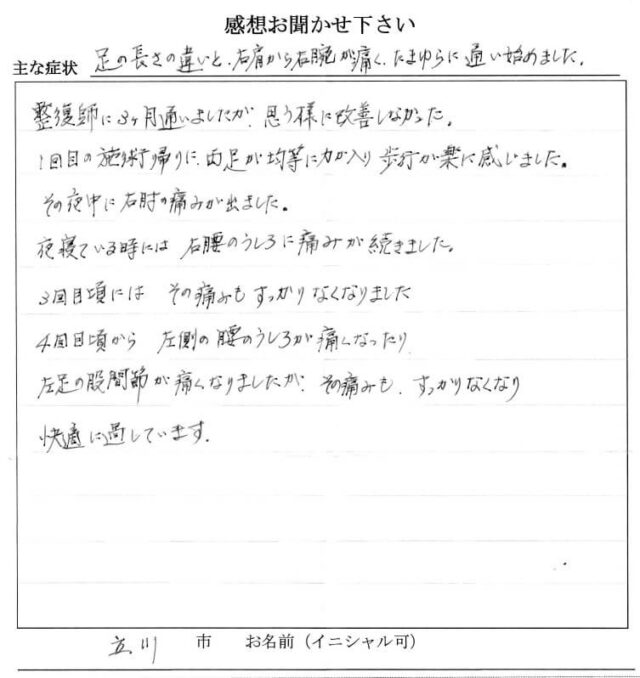 感想お聞かせ下さい
主な症状 足の長さの違いと、右肩から右腕が痛く、たまゆらに通い始めました。
整復師に3ヶ月通いましたが、思う様に改善しなかった。
1回目の施術帰りに、両足が均等に力が入り歩行が楽に感じました。
その夜中に右肘の痛みが出ました。
夜寝ている時には右腰のうしろに痛みが続きました。
3回目頃にはその痛みもすっかりなくなりました
4回目頃から左側の腰のうしろが痛くなったり
左足の股間節が痛くなりましたが、その痛みも、すっかりなくなり
快適に過しています.
立川 市 お名前(イニシャル可)